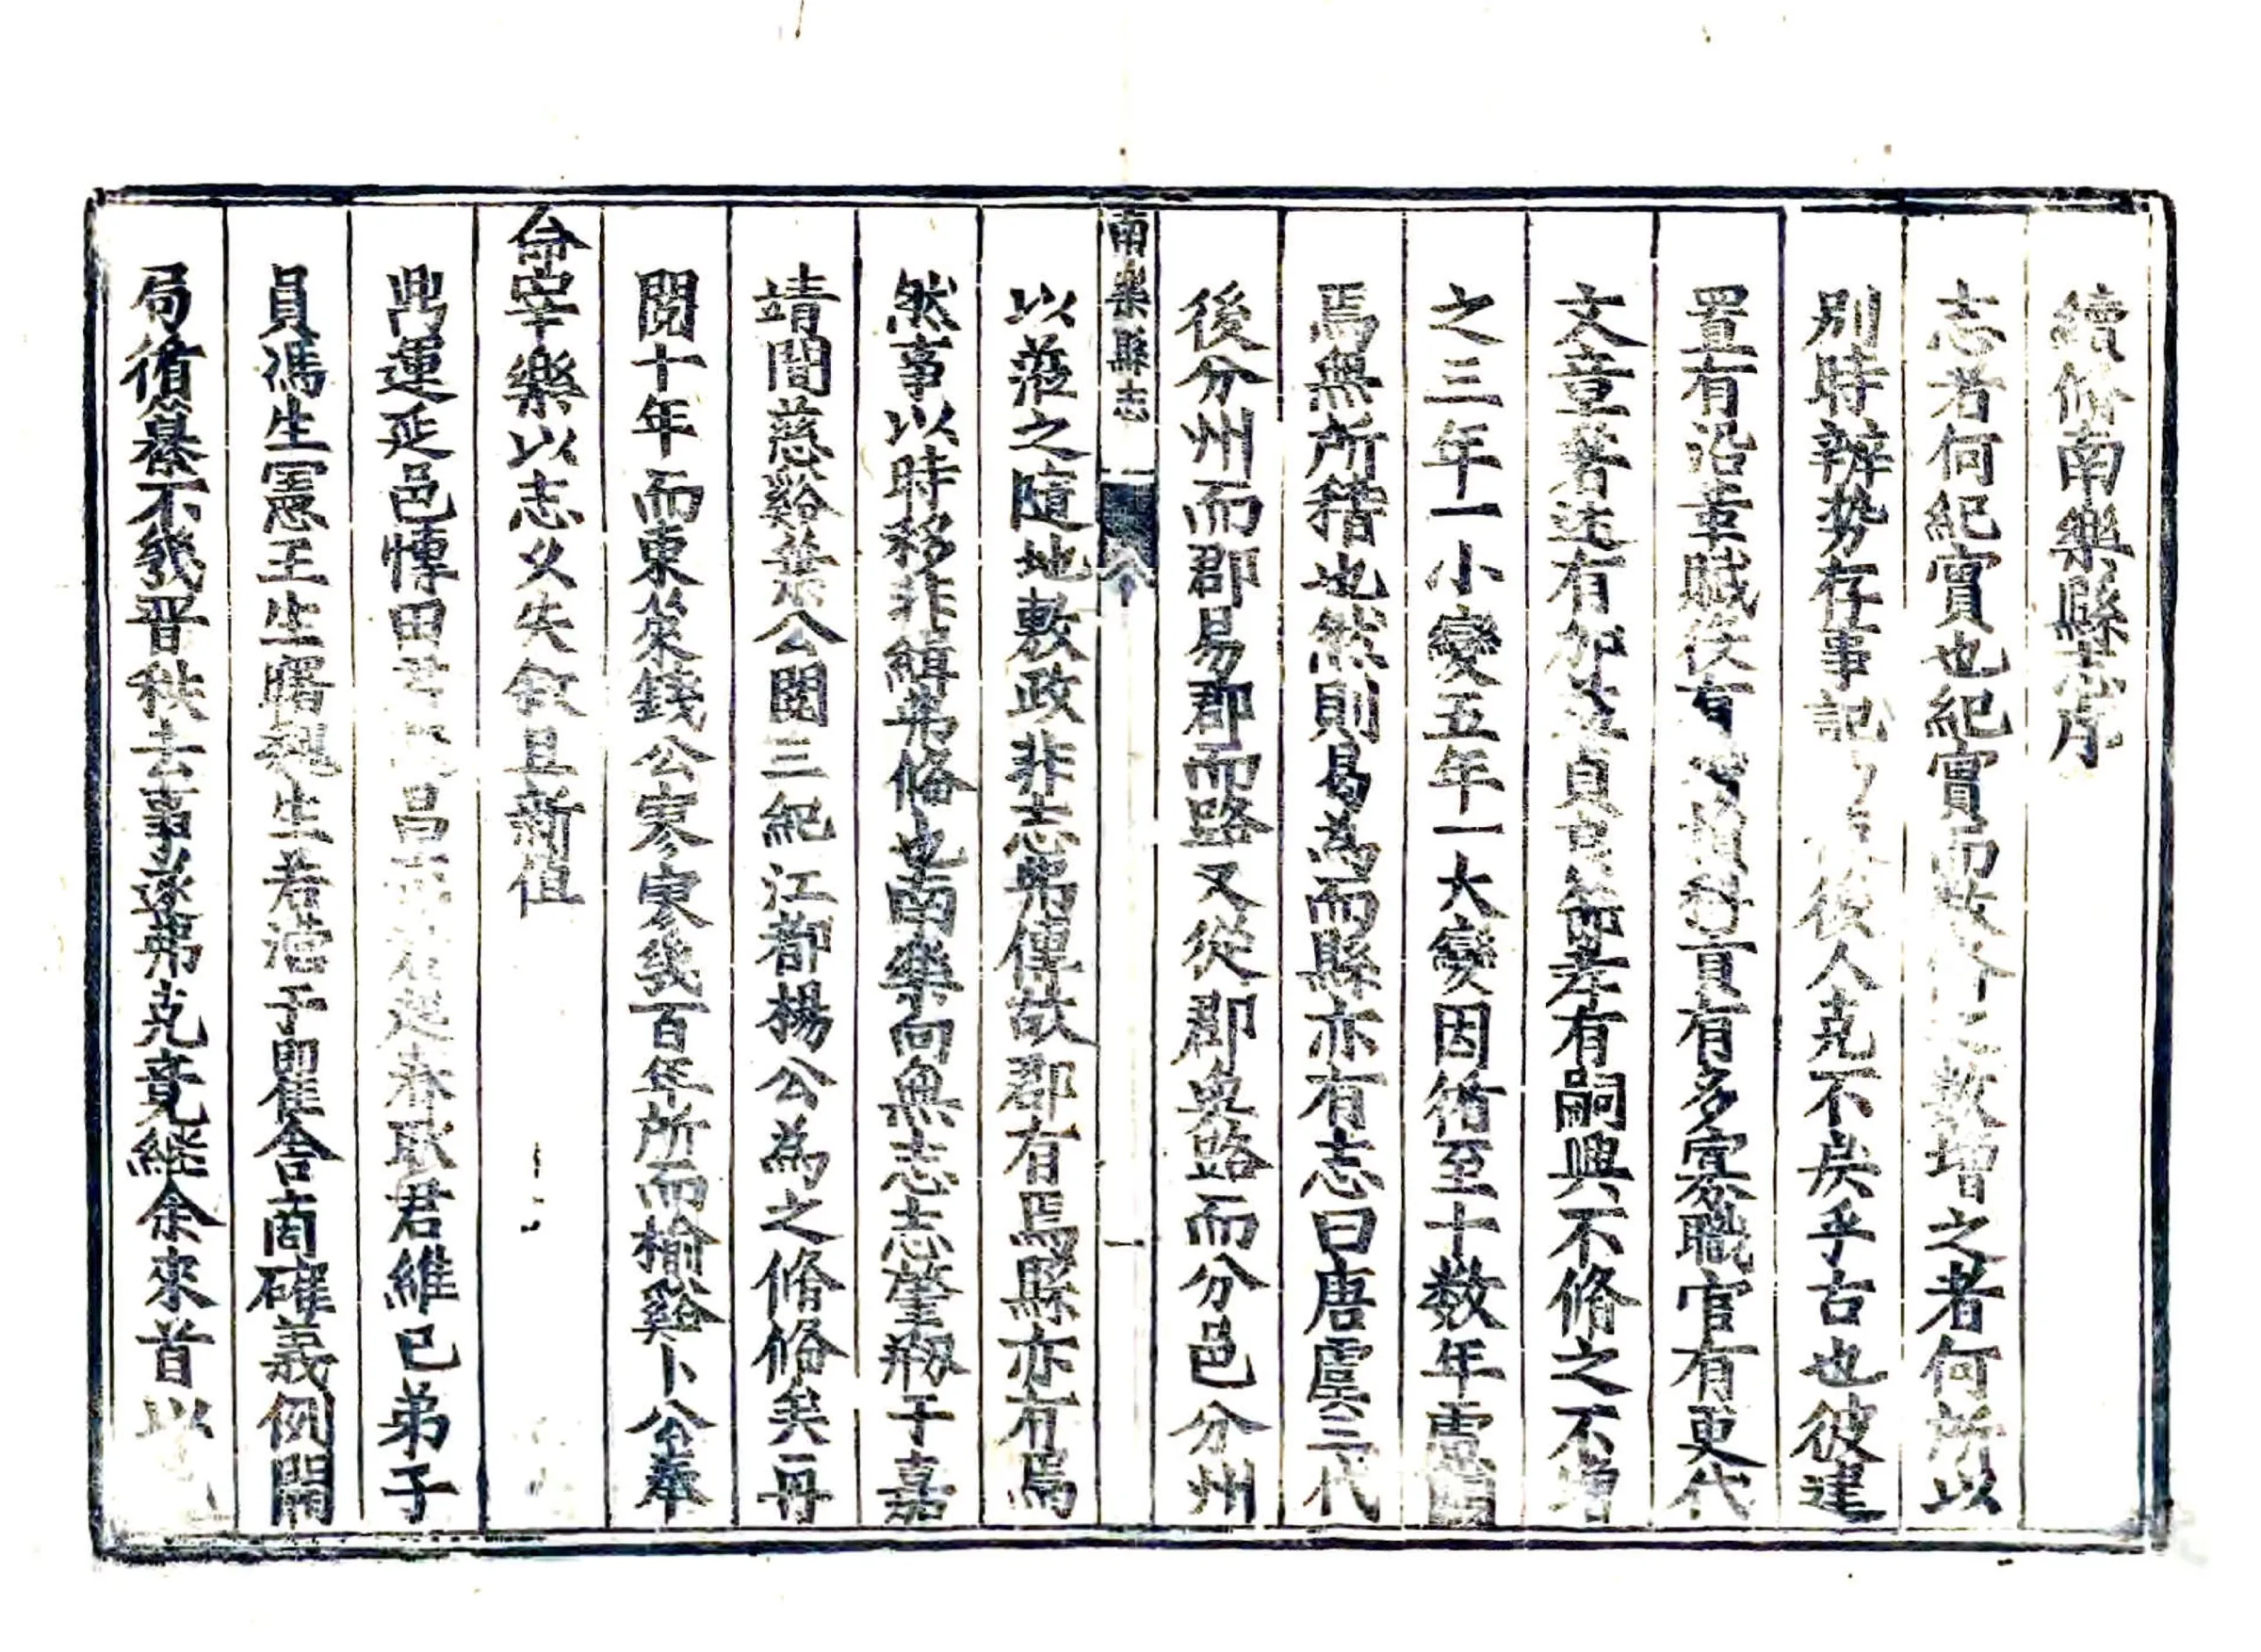 續脩南樂縣志序
志者何紀實也紀實而之數增之者何所以
別時辨勢存事記後人克不矣乎古也彼建
置有沿革賦役有科貢有多寡職官有更代
文章著述有貞節孝有嗣興不脩之不增
之三年一小變五年一大變因循至十數年
焉無所稽也然則曷為而縣亦有志曰唐虞三代
後分州而郡易郡而路又從郡與路而分邑分州
南樂縣志
一
以蒞之隨地敷政非志弗傳故郡有焉縣亦有焉
然事以時移非緝弗脩也南樂向無志志肇刱于嘉
靖間慈谿葉公閱三紀江都楊公為之脩脩矣再
閱十年而東萊錢公寥寥幾百年所而榆谿卜公奉
命宰樂以志乂失敘且新值
鼎運延邑博田君昌起春耿君維已弟子
員馮生憲王生曙趙生若濋于瞿舍商確義例開
局循纂不幾晉秩去事遂弗克竟繼余來首以